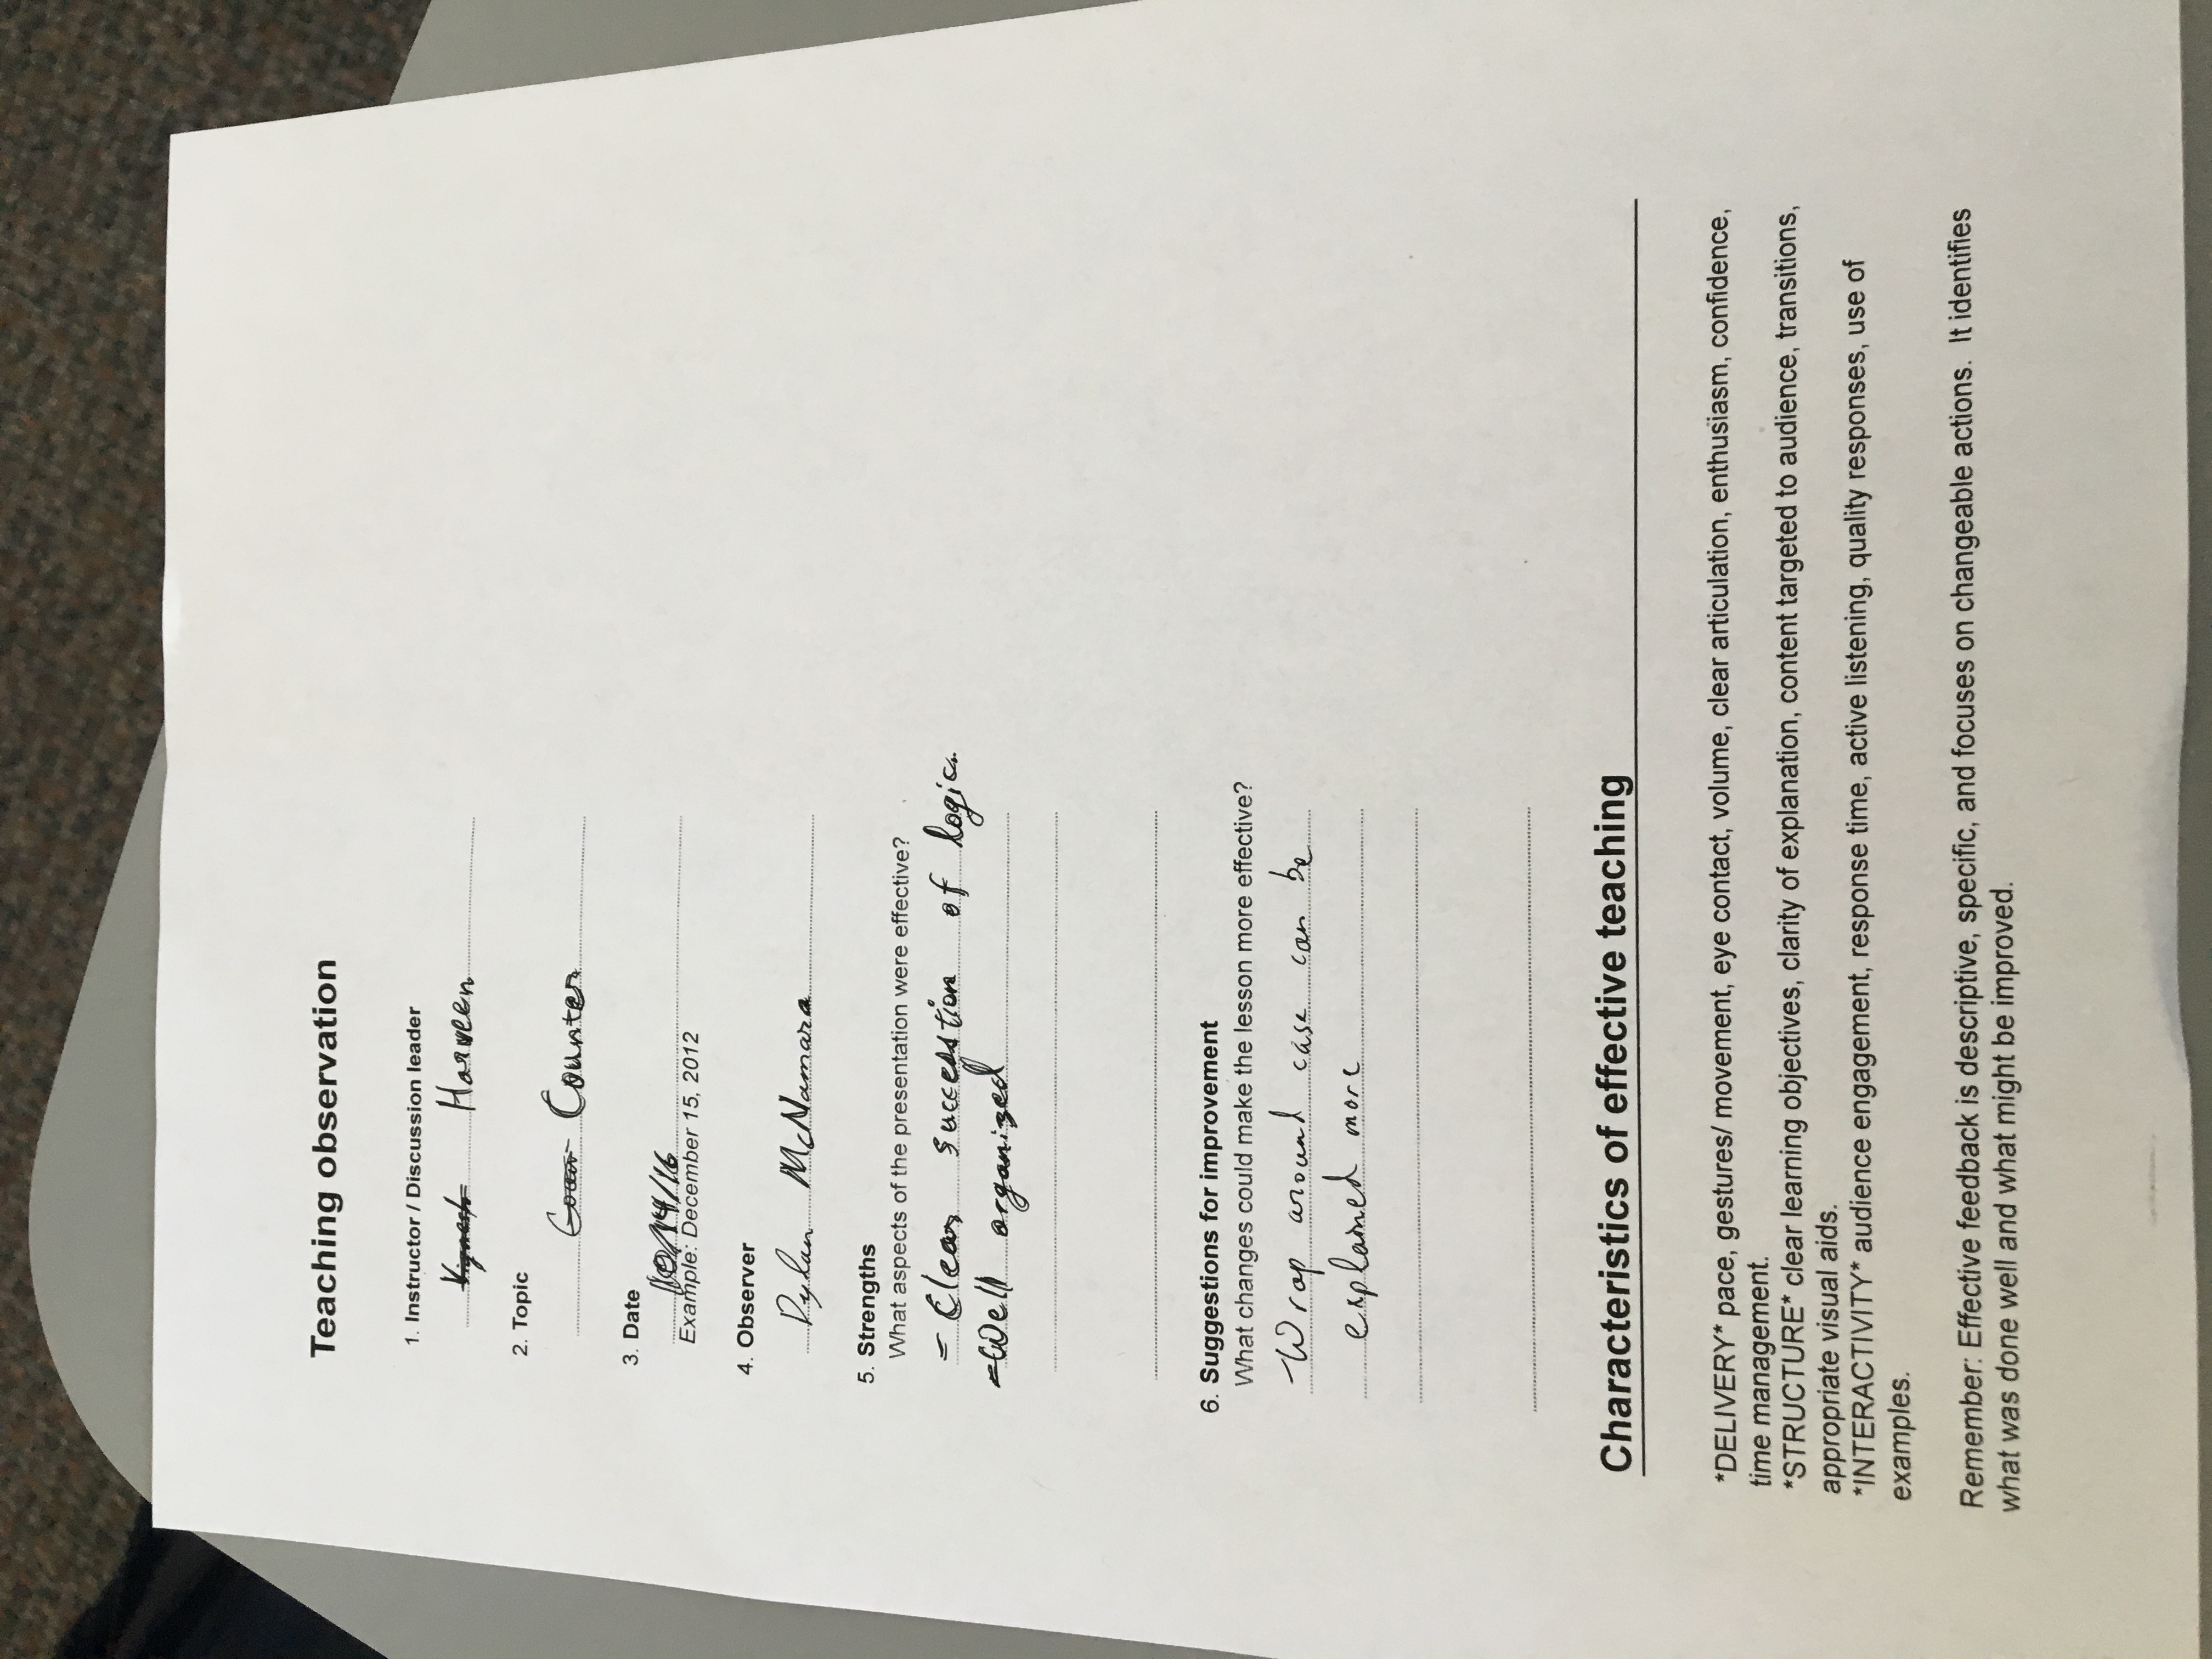 Teaching observation
1. Instructor / Discussion leader
Vignesh Harveen
2. Topic
Counter
3. Date
10/14/16
Example: December 15, 2012
4. Observer
Dylan McNamara
5. Strengths
What aspects of the presentation were effective?
- Clear succession of logic
- Well organized
6. Suggestions for improvement
What changes could make the lesson more effective?
- Wrap around case can be
explained more
Characteristics of effective teaching
*DELIVERY* pace, gestures/ movement, eye contact, volume, clear articulation, enthusiasm, confidence,
time management.
*STRUCTURE* clear learning objectives, clarity of explanation, content targeted to audience, transitions,
appropriate visual aids.
*INTERACTIVITY* audience engagement, response time, active listening, quality responses, use of
examples.
Remember: Effective feedback is descriptive, specific, and focuses on changeable actions.  It identifies
what was done well and what might be improved.